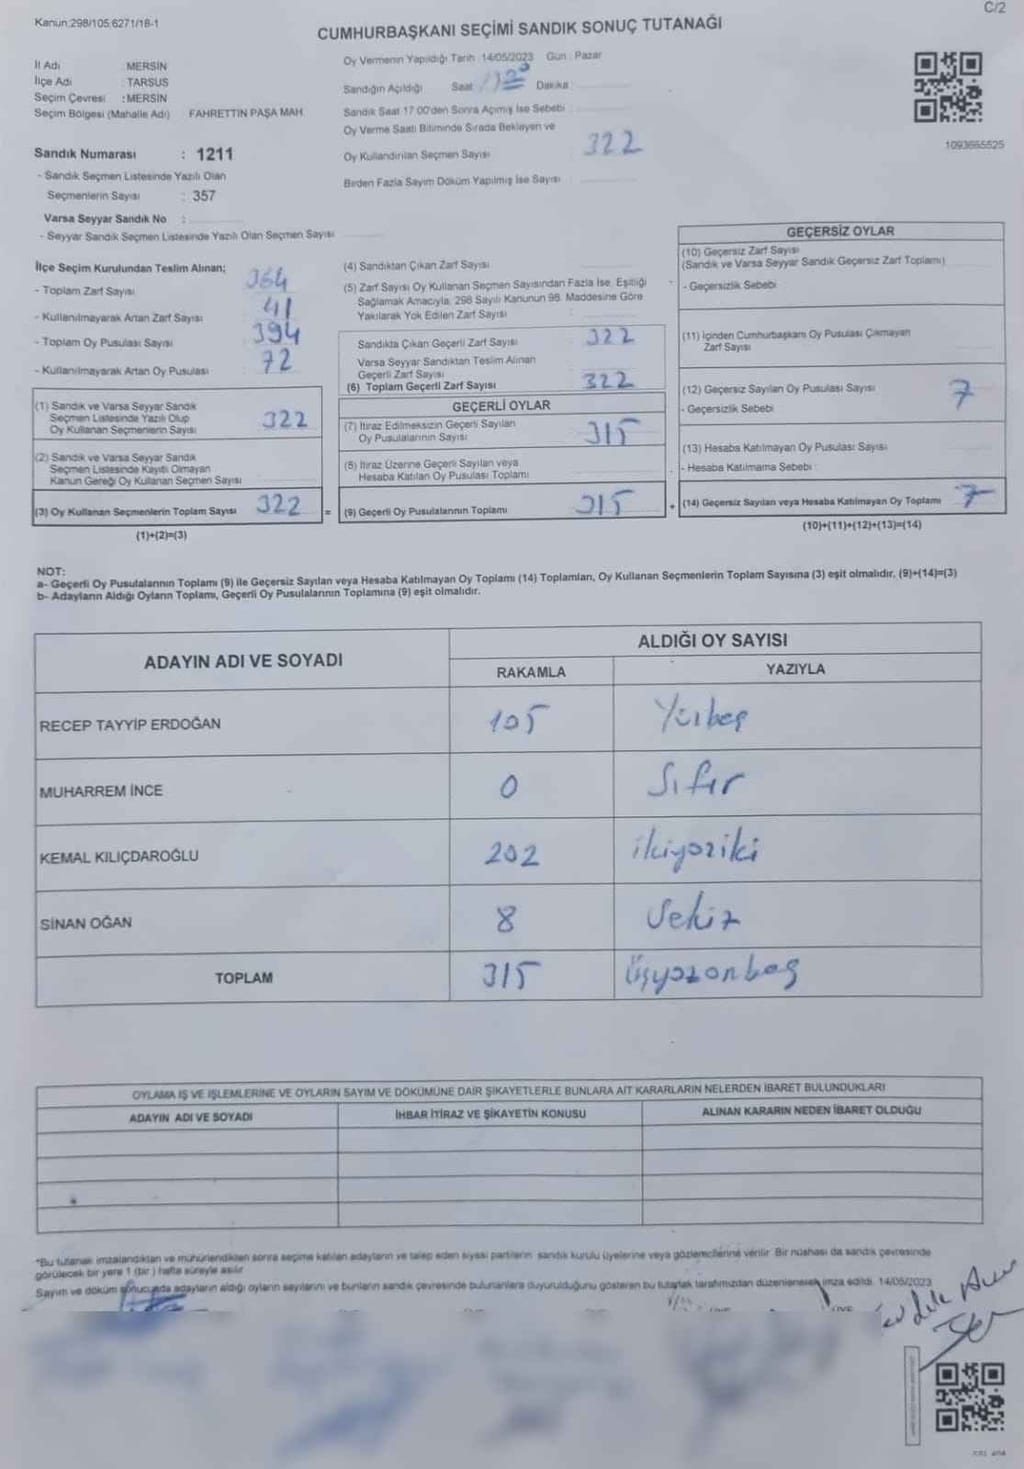 C/2
Kanun:298/105;6271/18-1
CUMHURBAŞKANI SEÇİMİ SANDIK SONUÇ TUTANAĞI
İl Adı : MERSİN
İlçe Adı : TARSUS
Seçim Çevresi : MERSİN
Seçim Bölgesi (Mahalle Adı) FAHRETTİN PAŞA MAH.
Sandık Numarası : 1211
- Sandık Seçmen Listesinde Yazılı Olan
Seçmenlerin Sayısı : 357
Varsa Seyyar Sandık No :
- Seyyar Sandık Seçmen Listesinde Yazılı Olan Seçmen Sayısı
Oy Vermenin Yapıldığı Tarih : 14/05/2023 Gün : Pazar
Sandığın Açıldığı Saat Dakika :
Sandık Saat 17:00'den Sonra Açılmış İse Sebebi :
Oy Verme Saati Bitiminde Sırada Bekleyen ve
Oy Kullandırılan Seçmen Sayısı 322
Birden Fazla Sayım Döküm Yapılmış İse Sayısı
1093665525
İlçe Seçim Kurulundan Teslim Alınan;
- Toplam Zarf Sayısı 364
- Kullanılmayarak Artan Zarf Sayısı 41
- Toplam Oy Pusulası Sayısı 394
- Kullanılmayarak Artan Oy Pusulası 72
(1) Sandık ve Varsa Seyyar Sandık
Seçmen Listesinde Yazılı Olup
Oy Kullanan Seçmenlerin Sayısı 322
(2) Sandık ve Varsa Seyyar Sandık
Seçmen Listesinde Kayıtlı Olmayan
Kanun Gereği Oy Kullanan Seçmen Sayısı
(3) Oy Kullanan Seçmenlerin Toplam Sayısı 322 =
(1)+(2)=(3)
(4) Sandıktan Çıkan Zarf Sayısı
(5) Zarf Sayısı Oy Kullanan Seçmen Sayısından Fazla İse, Eşitliği
Sağlamak Amacıyla, 298 Sayılı Kanunun 98. Maddesine Göre
Yakılarak Yok Edilen Zarf Sayısı :
Sandıkta Çıkan Geçerli Zarf Sayısı 322
Varsa Seyyar Sandıktan Teslim Alınan
Geçerli Zarf Sayısı
(6) Toplam Geçerli Zarf Sayısı 322
GEÇERLİ OYLAR
(7) İtiraz Edilmeksizin Geçerli Sayılan
Oy Pusulalarının Sayısı 315
(8) İtiraz Üzerine Geçerli Sayılan veya
Hesaba Katılan Oy Pusulası Toplamı
(9) Geçerli Oy Pusulalarının Toplamı 315 +
GEÇERSİZ OYLAR
(10) Geçersiz Zarf Sayısı
(Sandık ve Varsa Seyyar Sandık Geçersiz Zarf Toplamı)
- Geçersizlik Sebebi
(11) İçinden Cumhurbaşkanı Oy Pusulası Çıkmayan
Zarf Sayısı
(12) Geçersiz Sayılan Oy Pusulası Sayısı 7
- Geçersizlik Sebebi
(13) Hesaba Katılmayan Oy Pusulası Sayısı
- Hesaba Katılmama Sebebi
(14) Geçersiz Sayılan veya Hesaba Katılmayan Oy Toplamı 7
(10)+(11)+(12)+(13)=(14)
NOT:
a- Geçerli Oy Pusulalarının Toplamı (9) ile Geçersiz Sayılan veya Hesaba Katılmayan Oy Toplamı (14) Toplamları, Oy Kullanan Seçmenlerin Toplam Sayısına (3) eşit olmalıdır, (9)+(14)=(3)
b- Adayların Aldığı Oyların Toplamı, Geçerli Oy Pusulalarının Toplamına (9) eşit olmalıdır.
ADAYIN ADI VE SOYADI ALDIĞI OY SAYISI
RAKAMLA YAZIYLA
RECEP TAYYİP ERDOĞAN 105 Yüzbeş
MUHARREM İNCE 0 Sıfır
KEMAL KILIÇDAROĞLU 202 ikiyüziki
SİNAN OĞAN 8 Sekiz
TOPLAM 315 Üçyüzonbeş
OYLAMA İŞ VE İŞLEMLERİNE VE OYLARIN SAYIM VE DÖKÜMÜNE DAİR ŞİKAYETLERLE BUNLARA AİT KARARLARIN NELERDEN İBARET BULUNDUKLARI
ADAYIN ADI VE SOYADI İHBAR İTİRAZ VE ŞİKAYETİN KONUSU ALINAN KARARIN NEDEN İBARET OLDUĞU
*Bu tutanak imzalandıktan ve mühürlendikten sonra seçime katılan adayların ve talep eden siyasi partilerin sandık kurulu üyelerine veya gözlemcilerine verilir. Bir nüshası da sandık çevresinde
görülecek bir yere 1 (bir) hafta süreyle asılır.
Sayım ve döküm sonucunda adayların aldığı oyların sayılarını ve bunların sandık çevresinde bulunanlara duyurulduğunu gösteren bu tutanak tarafımızdan düzenlenerek imza edildi. 14/05/2023